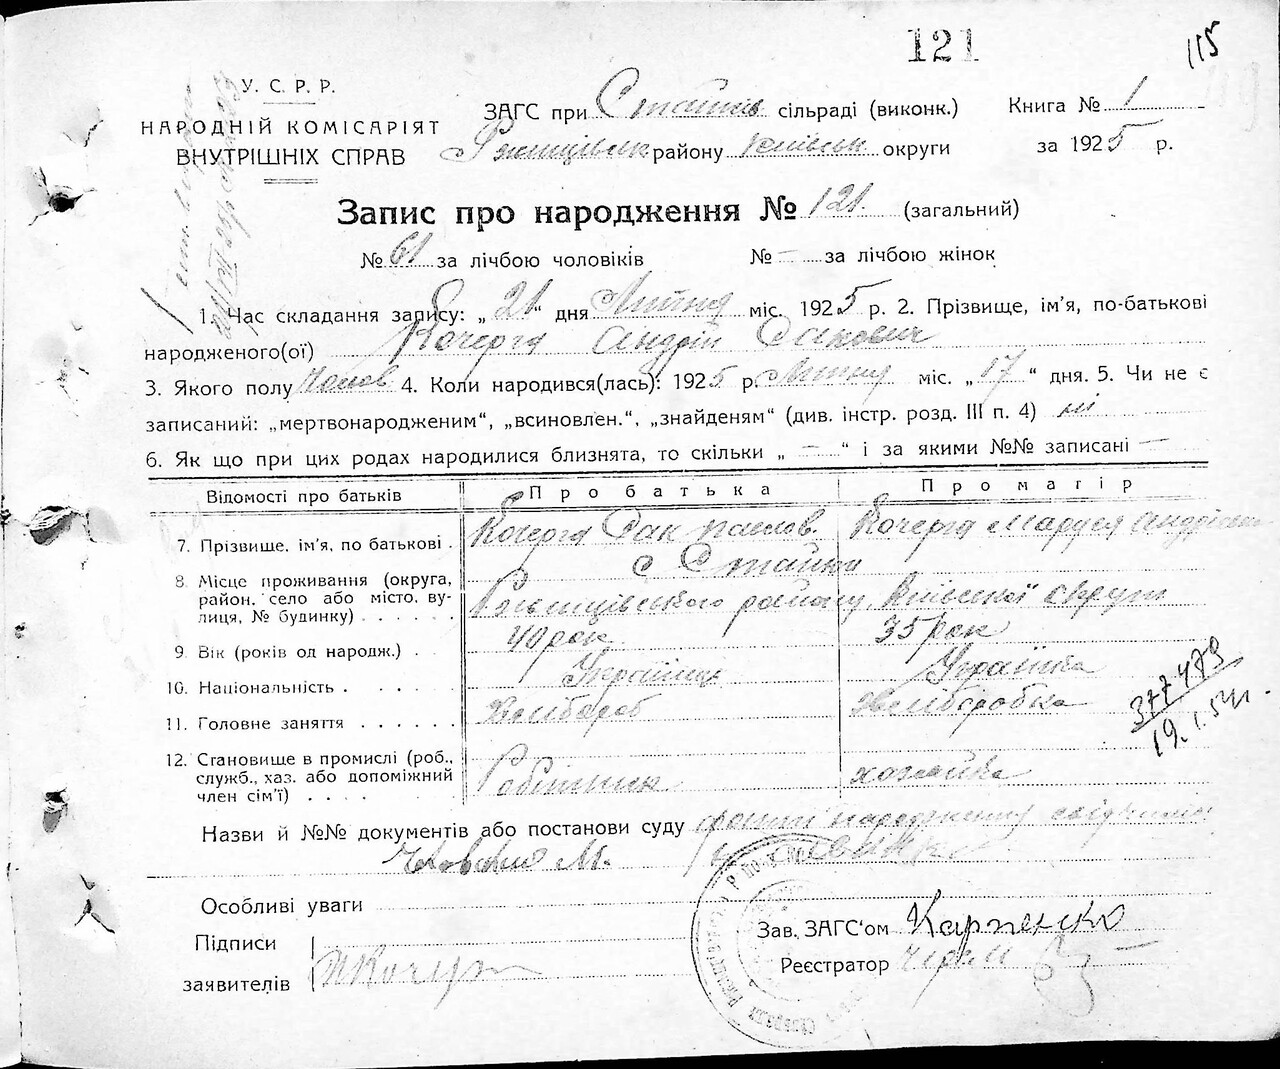 121
115
У. С. Р. Р.
НАРОДНІЙ КОМІСАРІЯТ
ВНУТРІШНІХ СПРАВ
ЗАГС при Стайків сільраді (виконк.)
Ржищівськ району Київськ округи
Книга № 1
за 1925 р.
Запис про народження № 121 (загальний)
№ 61 за лічбою чоловіків № — за лічбою жінок
1. Час складання запису: „21" дня Лютня міс. 1925 р. 2. Прізвище, ім'я, по-батькові
народженого(ої) Кочерга Андрій Сакович
3. Якого полу Чолов 4. Коли народився(лась): 1925 р. Лютня міс. „17" дня. 5. Чи не є
записаний: „мертвонародженим", „всиновлен.", „знайденям" (див. інстр. розд. III п. 4) ні
6. Як що при цих родах народилися близнята, то скільки „—" і за якими №№ записані —
Відомості про батьків Про батька Про матір
7. Прізвище, ім'я, по батькові . Кочерга Сак павлов. Кочерга Маруся Андріївна
8. Місце проживання (округа, с Стайки
район, село або місто, ву-
лиця, № будинку) . . . . . . Ржищівського району Київської округи
9. Вік (років од народж.) . 40 рок 35 рок
10. Національність . . . . . Українець Українка
11. Головне заняття . . . . . . Хлібороб Хліборобка
12. Становище в промислі (роб.,
служб., хаз. або допоміжний
член сім'ї) . . . . Робітник хазяйка
377479
19.I.54г.
Назви й №№ документів або постанови суду
Особливі уваги
Підписи
заявителів
Зав. ЗАГС'ом Карпенко
Реєстратор